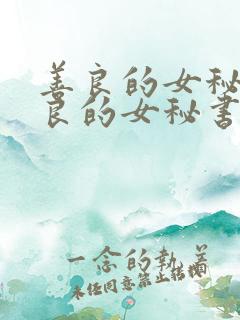 善良的女秘
良的女秘书
一念的执着
未经同意禁止转载